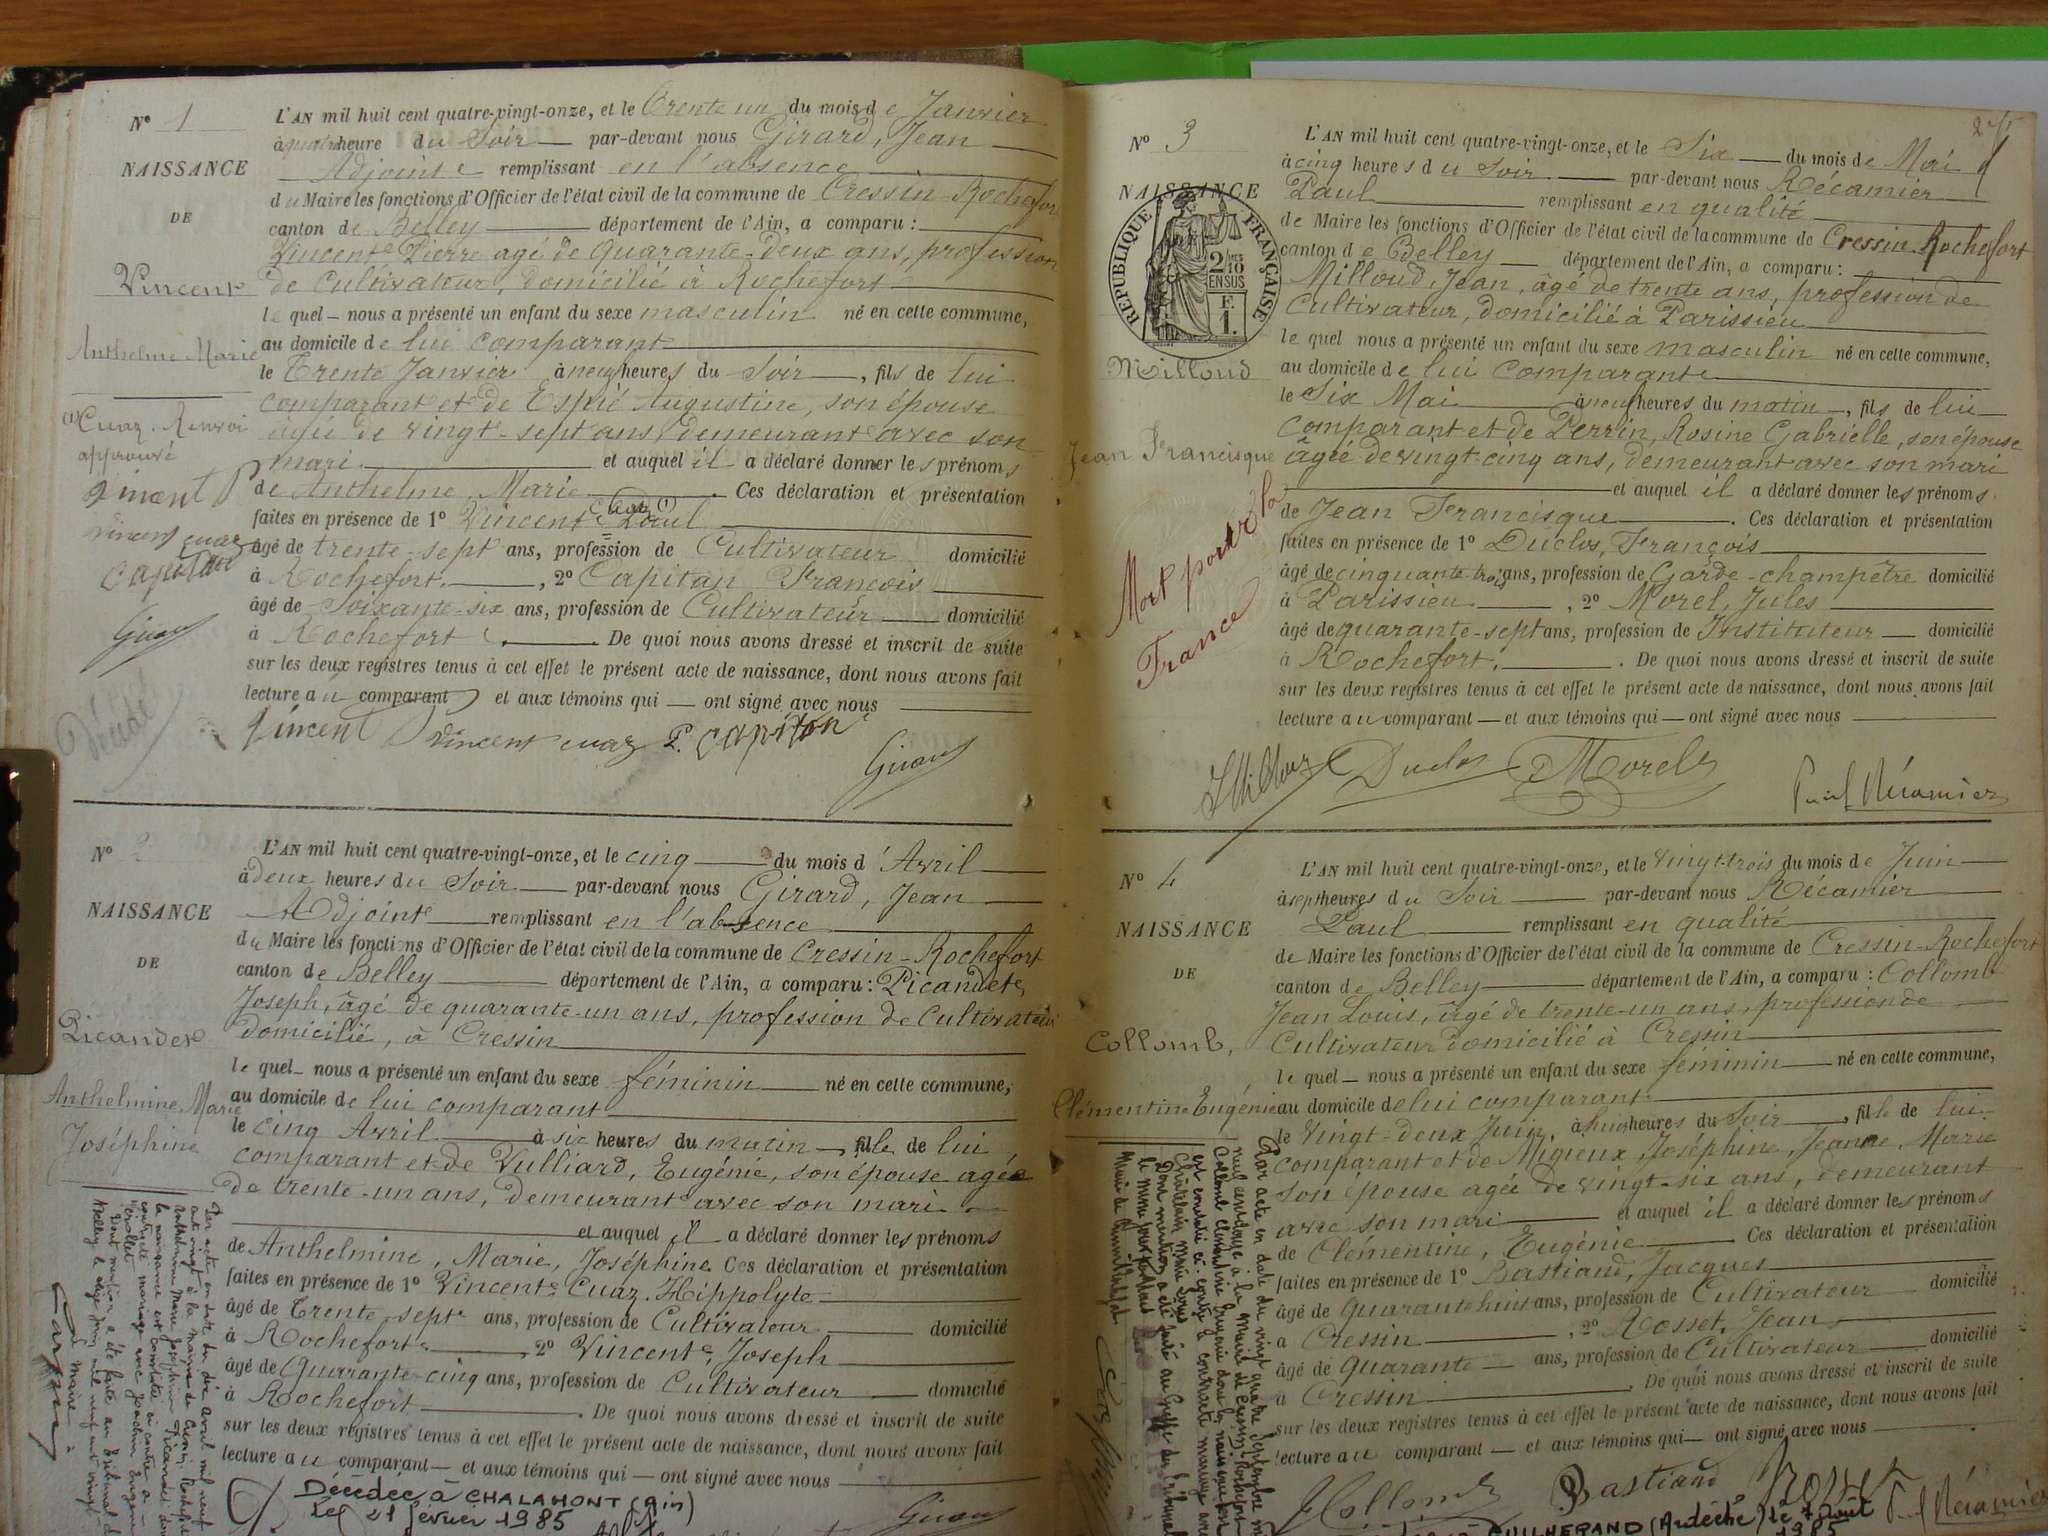 N° 1
NAISSANCE
DE
Vincent
Anthelme Marie
(1) Cuaz. Renvoi
approuvé
Vincent
Vincent cuaz
Capitan
Girard
Décédé
L'AN mil huit cent quatre-vingt-onze, et le Trente un du mois de Janvier
à quatre heure du Soir par-devant nous Girard, Jean
Adjoint remplissant en l'absence
du Maire les fonctions d'Officier de l'état civil de la commune de Cressin-Rochefort
canton de Belley département de l'Ain, a comparu :
Vincent Pierre agé de quarante-deux ans, profession
de Cultivateur, domicilié à Rochefort
le quel nous a présenté un enfant du sexe masculin né en cette commune,
au domicile de lui comparant
le Trente Janvier à neuf heures du Soir, fils de lui
comparant et de Espié Augustine, son épouse
âgée de vingt-sept ans, demeurant avec son
mari et auquel il a déclaré donner les prénoms
de Anthelme, Marie. Ces déclaration et présentation
faites en présence de 1° Vincent Cuaz (1) Paul
âgé de trente-sept ans, profession de Cultivateur domicilié
à Rochefort, 2° Capitan François
âgé de Soixante-six ans, profession de Cultivateur domicilié
à Rochefort. De quoi nous avons dressé et inscrit de suite
sur les deux registres tenus à cet effet le présent acte de naissance, dont nous avons fait
lecture au comparant et aux témoins qui ont signé avec nous
Vincent P Vincent cuaz P. Capitan
Girard
N° 2
NAISSANCE
DE
Picandet
Anthelmine, Marie
Joséphine
L'AN mil huit cent quatre-vingt-onze, et le cinq du mois d'Avril
à deux heures du Soir par-devant nous Girard, Jean
Adjoint remplissant en l'absence
du Maire les fonctions d'Officier de l'état civil de la commune de Cressin-Rochefort
canton de Belley département de l'Ain, a comparu : Picandet,
Joseph, âgé de quarante-un ans, profession de Cultivateur
domicilié, à Cressin
le quel nous a présenté un enfant du sexe féminin né en cette commune,
au domicile de lui comparant
le cinq Avril à six heures du matin, fille de lui
comparant et de Vulliard, Eugénie, son épouse agée
de trente-un ans, demeurant avec son mari
et auquel il a déclaré donner les prénoms
de Anthelmine, Marie, Joséphine. Ces déclaration et présentation
faites en présence de 1° Vincent Cuaz. Hippolyte
âgé de Trente-sept ans, profession de Cultivateur domicilié
à Rochefort, 2° Vincent, Joseph
âgé de Quarante-cinq ans, profession de Cultivateur domicilié
à Rochefort. De quoi nous avons dressé et inscrit de suite
sur les deux registres tenus à cet effet le présent acte de naissance, dont nous avons fait
lecture au comparant et aux témoins qui ont signé avec nous
Décédée à CHALAMONT (Ain)
le 21 février 1985
Girard
Par acte en date du dix avril mil neuf
cent vingt à la mairie de
Anthelmine Marie Joséphine Picandet dont
la naissance est constatée ci-contre a
contracté mariage avec
Dont mention a été faite au tribunal de
Belley le
Le maire
N° 3
NAISSANCE
RÉPUBLIQUE FRANÇAISE
2/10
EN SUS
F.
1.
Milloud
Jean Francisque
Mort pour la
France
L'AN mil huit cent quatre-vingt-onze, et le Six du mois de Mai
à cinq heures du Soir par-devant nous Récamier
Paul remplissant en qualité
de Maire les fonctions d'Officier de l'état civil de la commune de Cressin-Rochefort
canton de Belley département de l'Ain, a comparu :
Milloud, Jean, âgé de trente ans, profession de
Cultivateur, domicilié à Parissieu
le quel nous a présenté un enfant du sexe masculin né en cette commune,
au domicile de lui comparant
le Six Mai à neuf heures du matin, fils de lui
comparant et de Perrin, Rosine Gabrielle, son épouse
âgée de vingt-cinq ans, demeurant avec son mari
et auquel il a déclaré donner les prénoms
de Jean Francisque. Ces déclaration et présentation
faites en présence de 1° Duclos, François
âgé de cinquante-trois ans, profession de Garde-champêtre domicilié
à Parissieu, 2° Morel, Jules
âgé de quarante-sept ans, profession de Instituteur domicilié
à Rochefort. De quoi nous avons dressé et inscrit de suite
sur les deux registres tenus à cet effet le présent acte de naissance, dont nous avons fait
lecture au comparant et aux témoins qui ont signé avec nous
Duclos Morel Paul Récamier
N° 4
NAISSANCE
DE
Collomb,
Clémentine Eugénie
L'AN mil huit cent quatre-vingt-onze, et le Vingt-trois du mois de Juin
à sept heures du Soir par-devant nous Récamier
Paul remplissant en qualité
de Maire les fonctions d'Officier de l'état civil de la commune de Cressin-Rochefort
canton de Belley département de l'Ain, a comparu : Collomb
Jean Louis, âgé de trente-un ans, profession de
Cultivateur domicilié à Cressin
le quel nous a présenté un enfant du sexe féminin né en cette commune,
au domicile de lui comparant
le Vingt-deux Juin, à huit heures du Soir, fille de lui
comparant et de Migieux, Joséphine, Jeanne, Marie
son épouse agée de vingt-six ans, demeurant
avec son mari et auquel il a déclaré donner les prénoms
de Clémentine, Eugénie. Ces déclaration et présentation
faites en présence de 1° Bastiand, Jacques
âgé de Quarante huit ans, profession de Cultivateur domicilié
à Cressin, 2° Rosset, Jean
âgé de Quarante ans, profession de Cultivateur domicilié
à Cressin. De quoi nous avons dressé et inscrit de suite
sur les deux registres tenus à cet effet le présent acte de naissance, dont nous avons fait
lecture au comparant et aux témoins qui ont signé avec nous
Collomb Bastiand Rosset Paul Récamier
GUILHERAND (Ardèche) le 7 Août
1985
Par acte en date du vingt quatre septembre mil
neuf cent
Collomb Clémentine Eugénie dont la naissance
est constatée ci-contre a contracté mariage avec
Dont mention a été faite au Greffe du Tribunal